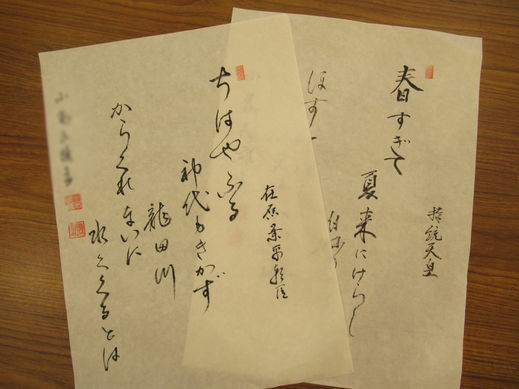 持統天皇
春すぎて
夏来にけらし
ほす
在原業平朝臣
ちはやふる
神代もきかず
龍田川
からくれないに
水くくるとは